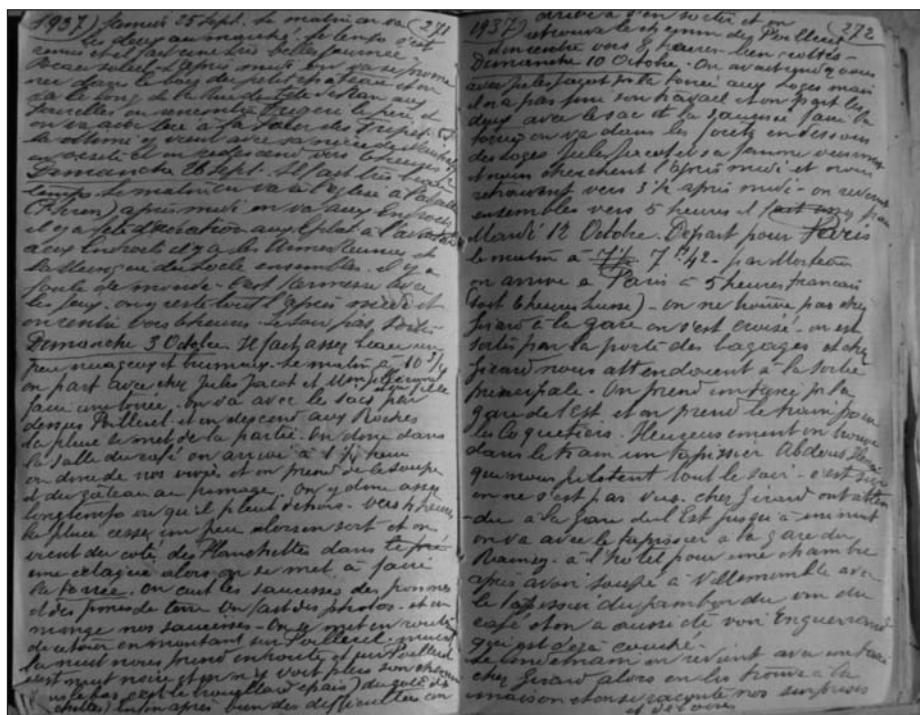 1937) Samedi 25 Sept. Le matin on va (271
les deux au marché, le temps s'est
remis et il fait une très belle journée
beau soleil. L'après midi on va se prome
ner dans le bois du petit château et on
va le long de la Rue de Tête de Ran aux
on rencontre Eugène le père, et
on va
la Mémé y vient avec sa nièce de
on et on redescend vers 6 heures
Dimanche 26 Sept. Il fait très beau
temps. Le matin on va à l'église à l'
après midi on va aux Endroits
il y a fête
aux Endroits il y a les Armes Réunies et
la Musique du Locle ensembles. il y a
foule de monde. C'est kermesse avec
les jeux. on y reste tout l'après midi et
on rentre vers 6 heures. Le soir pas sortis
Dimanche 3 Octobre Il fait assez beau un
peu nuageux et brumeux. Le matin à 10 3/4
on part avec chez Jules Jacot et
faire une torrée. on va avec le sacs par
dessus Pouillerel et on descend aux Roches
la pluie se met de la partie. On dîne dans
la salle du café on arrive à 1 heure
on dîne de nos vivres et on prend de la soupe
et du gâteau au fromage. On y dîne assez
longtemps vu qu'il pleut dehors. vers 4 heures
la pluie cesse un peu alors on sort et on
vient du coté des Planchettes dans le pré
une alors on se met à faire
la torrée. On cuit les saucisses des pommes
et des pommes de terre On fait des photos. et on
mange nos saucisses. On se met en route
de retour en montant sur Pouillerel. mais
la nuit nous prend en route et sur Pouillerel
c'est nuit noire et on n'y voit plus son chemin
c'est le brouillard épais) du coté des
enfin après bien des difficultés on
1937) arrive à s'en sortir et on (272
retrouve le chemin de Pouillerel
on rentre vers 8 heures bien crottés.
Dimanche 10 Octobre. On avait rendez vous
avec Jules Jacot pr la torrée aux Loges mais
il n'a pas fini son travail et on part les
deux avec le sac et la saucisse faire la
torrée on va dans les forêts en dessous
des Loges Jules Jacot et sa femme viennent
et nous cherchent l'après midi et nous
retrouvent vers 3 1/2 après midi. on revient
ensembles vers 5 heures il fait froid
Mardi 12 Octobre. Départ pour Paris
le matin à 7 h 42. par Morteau
on arrive à Paris à 5 heures français
(soit 6 heures suisse). on ne trouve pas chez
Girard à la gare on s'est croisé. on est
sortis par la porte des bagages et chez
Girard nous attendaient à la sortie
principale. On prend un taxi pr la
gare de l'Est et on prend le train pour
les Coquetiers. Heureusement on trouve
dans le train un tapissier
qui nous pilotent tout le soir. c'est sûr
on ne s'est pas vus. chez Girard ont atten
du à la gare de l'Est jusqu'à minuit
on va avec le tapissier à la gare du
Raincy. à l'hôtel pour une chambre
après avoir soupé à Villemomble avec
le tapissier du jambon du vin du
café et on a aussi été voir Enguerrand
qui est déjà couché.
Le lendemain on revient avec un taxi
chez Girard alors on les trouve à la
maison et on se raconte nos surprises
et déboires